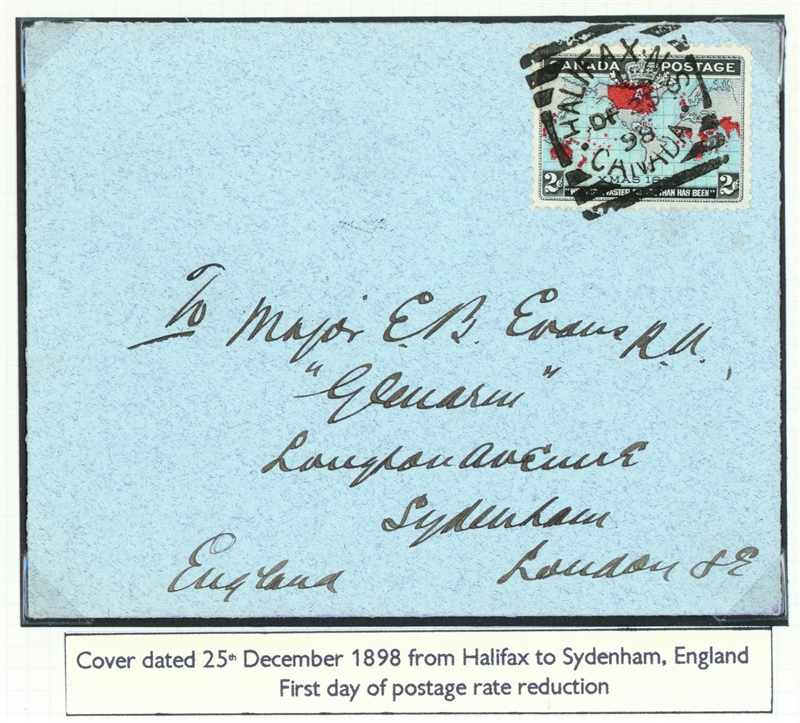 CANADA POSTAGE
HALIFAX, N.S.
DE 25
98
CANADA
XMAS 18
2c 2c
"WE HOLD A VASTER EMPIRE THAN HAS BEEN"
To Major E. B. Evans R.A.
"Glenarm"
Longton Avenue
Sydenham
England London SE
Cover dated 25th December 1898 from Halifax to Sydenham, England
First day of postage rate reduction